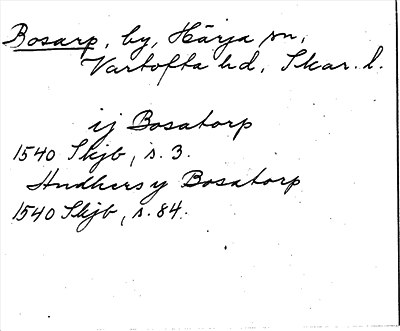 Bosarp, by, Härja sn,
Vartofta hd, Skar. l.
ij Bosatorp
1540 Skjb, s. 3.
y Bosatorp
1540 Skjb, s. 84.